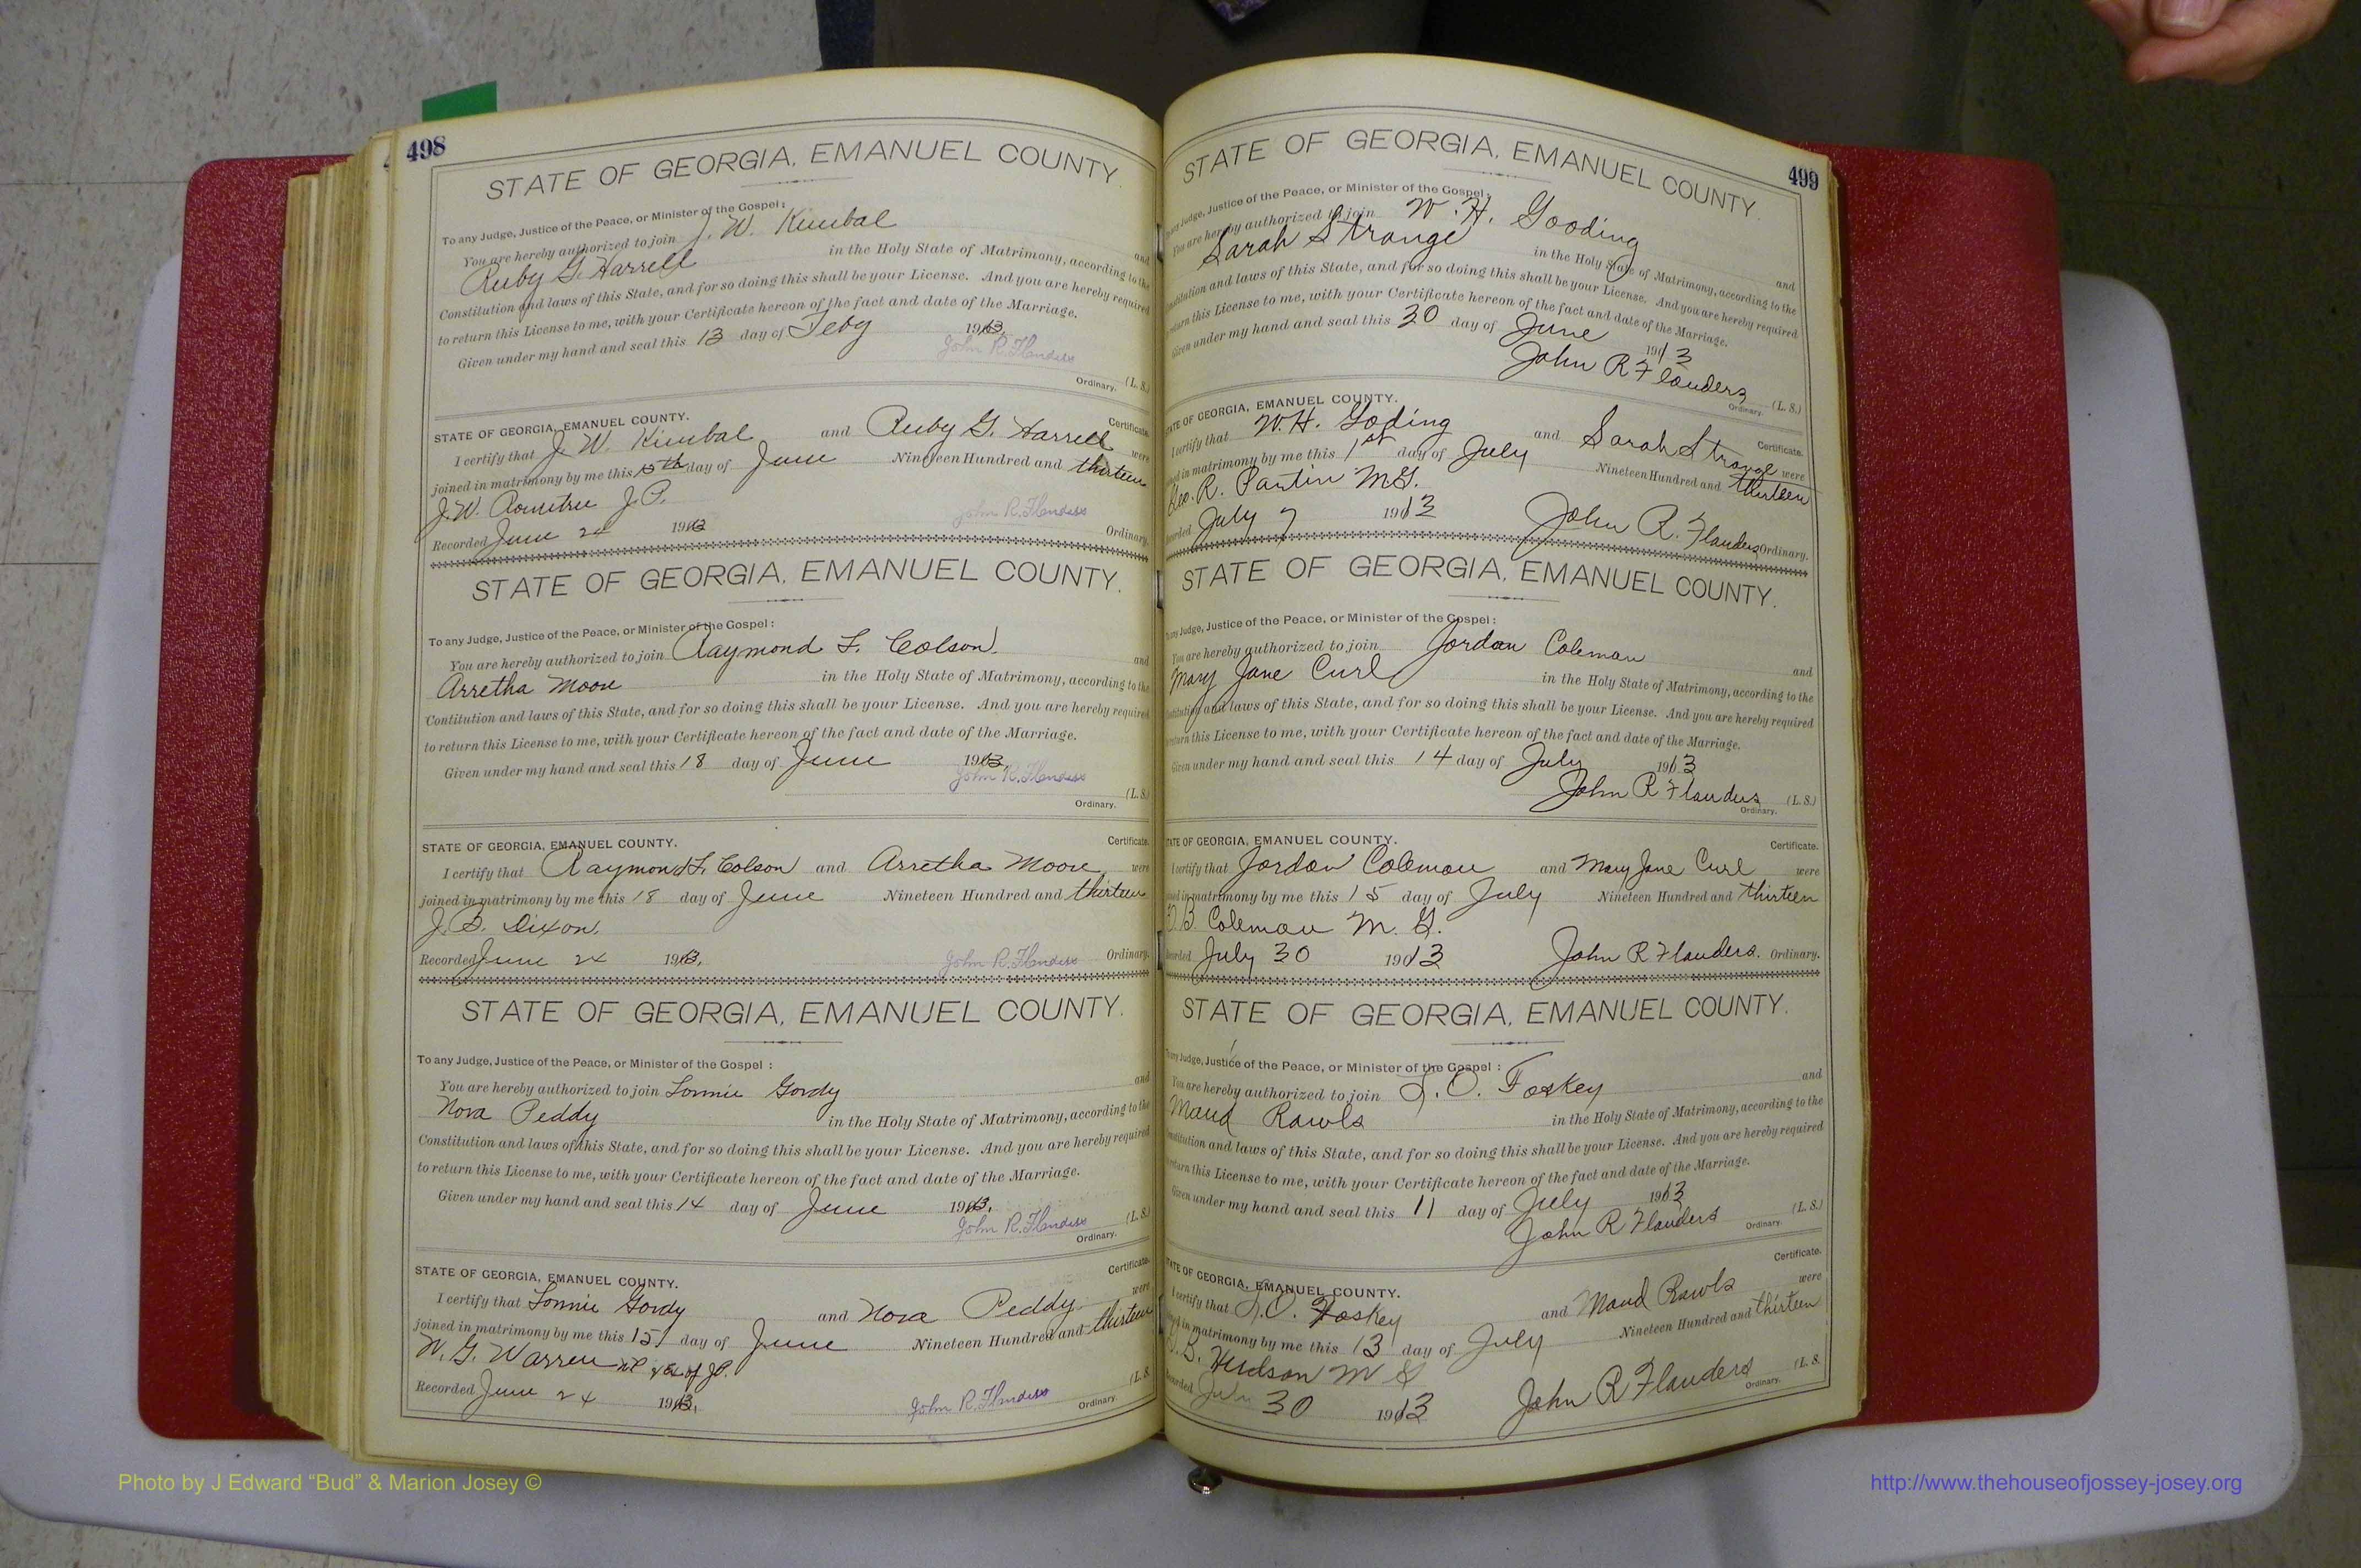 498
STATE OF GEORGIA, EMANUEL COUNTY.
To any Judge, Justice of the Peace, or Minister of the Gospel:
You are hereby authorized to join J. W. Kimbal and
Ruby G. Harrell in the Holy State of Matrimony, according to the
Constitution and laws of this State, and for so doing this shall be your License. And you are hereby required
to return this License to me, with your Certificate hereon of the fact and date of the Marriage.
Given under my hand and seal this 13 day of Feby 1913.
John R. Flanders
Ordinary. (L. S.)
STATE OF GEORGIA, EMANUEL COUNTY. Certificate.
I certify that J. W. Kimbal and Ruby G. Harrell were
joined in matrimony by me this 15th day of June Nineteen Hundred and thirteen
J. W. Rountree J. P.
Recorded June 24 1913 John R. Flanders Ordinary.
STATE OF GEORGIA, EMANUEL COUNTY.
To any Judge, Justice of the Peace, or Minister of the Gospel:
You are hereby authorized to join Raymond F. Colson and
Arretha Moore in the Holy State of Matrimony, according to the
Contitution and laws of this State, and for so doing this shall be your License. And you are hereby required
to return this License to me, with your Certificate hereon of the fact and date of the Marriage.
Given under my hand and seal this 18 day of June 1913.
John R. Flanders
(L. S.)
Ordinary.
STATE OF GEORGIA, EMANUEL COUNTY. Certificate.
I certify that Raymond F. Colson and Arretha Moore were
joined in matrimony by me this 18 day of June Nineteen Hundred and thirteen
J. B. Dixon.
Recorded June 24 1913. John R. Flanders Ordinary.
STATE OF GEORGIA, EMANUEL COUNTY.
To any Judge, Justice of the Peace, or Minister of the Gospel:
You are hereby authorized to join Lonnie Gordy and
Nora Peddy in the Holy State of Matrimony, according to the
Constitution and laws of this State, and for so doing this shall be your License. And you are hereby required
to return this License to me, with your Certificate hereon of the fact and date of the Marriage.
Given under my hand and seal this 14 day of June 1913.
John R. Flanders (L. S.)
Ordinary.
STATE OF GEORGIA, EMANUEL COUNTY. Certificate.
I certify that Lonnie Gordy and Nora Peddy were
joined in matrimony by me this 15 day of June Nineteen Hundred and thirteen
W. G. Warren NP & Ex of JP.
Recorded June 24 1913. John R. Flanders Ordinary. (L. S.
499
STATE OF GEORGIA, EMANUEL COUNTY.
any Judge, Justice of the Peace, or Minister of the Gospel:
You are hereby authorized to join W. H. Gooding and
Sarah Strange in the Holy State of Matrimony, according to the
Constitution and laws of this State, and for so doing this shall be your License. And you are hereby required
return this License to me, with your Certificate hereon of the fact and date of the Marriage.
Given under my hand and seal this 30 day of June 1913
John R Flanders (L. S.)
Ordinary.
STATE OF GEORGIA, EMANUEL COUNTY. Certificate.
I certify that W. H. Goding and Sarah Strange were
joined in matrimony by me this 1st day of July Nineteen Hundred and thirteen
Geo. R. Partin M.G.
Recorded July 7 1913 John R. Flanders Ordinary.
STATE OF GEORGIA, EMANUEL COUNTY.
To any Judge, Justice of the Peace, or Minister of the Gospel:
You are hereby authorized to join Jordan Coleman and
Mary Jane Curl in the Holy State of Matrimony, according to the
Constitution and laws of this State, and for so doing this shall be your License. And you are hereby required
return this License to me, with your Certificate hereon of the fact and date of the Marriage.
Given under my hand and seal this 14 day of July 1913
John R Flanders (L. S.)
Ordinary.
STATE OF GEORGIA, EMANUEL COUNTY. Certificate.
I certify that Jordan Coleman and Mary Jane Curl were
joined in matrimony by me this 15 day of July Nineteen Hundred and thirteen
B. Coleman M. G.
Recorded July 30 1913 John R Flanders. Ordinary.
STATE OF GEORGIA, EMANUEL COUNTY.
To any Judge, Justice of the Peace, or Minister of the Gospel:
You are hereby authorized to join L. O. Foskey and
Maud Rawls in the Holy State of Matrimony, according to the
Constitution and laws of this State, and for so doing this shall be your License. And you are hereby required
return this License to me, with your Certificate hereon of the fact and date of the Marriage.
Given under my hand and seal this 11 day of July 1913
John R Flanders (L. S.)
Ordinary.
STATE OF GEORGIA, EMANUEL COUNTY. Certificate.
I certify that L. O. Foskey and Maud Rawls were
joined in matrimony by me this 13 day of July Nineteen Hundred and thirteen
B. Hudson M G
Recorded July 30 1913 John R Flanders Ordinary. (L. S.
Photo by J Edward “Bud” & Marion Josey ©
http://www.thehouseofjossey-josey.org